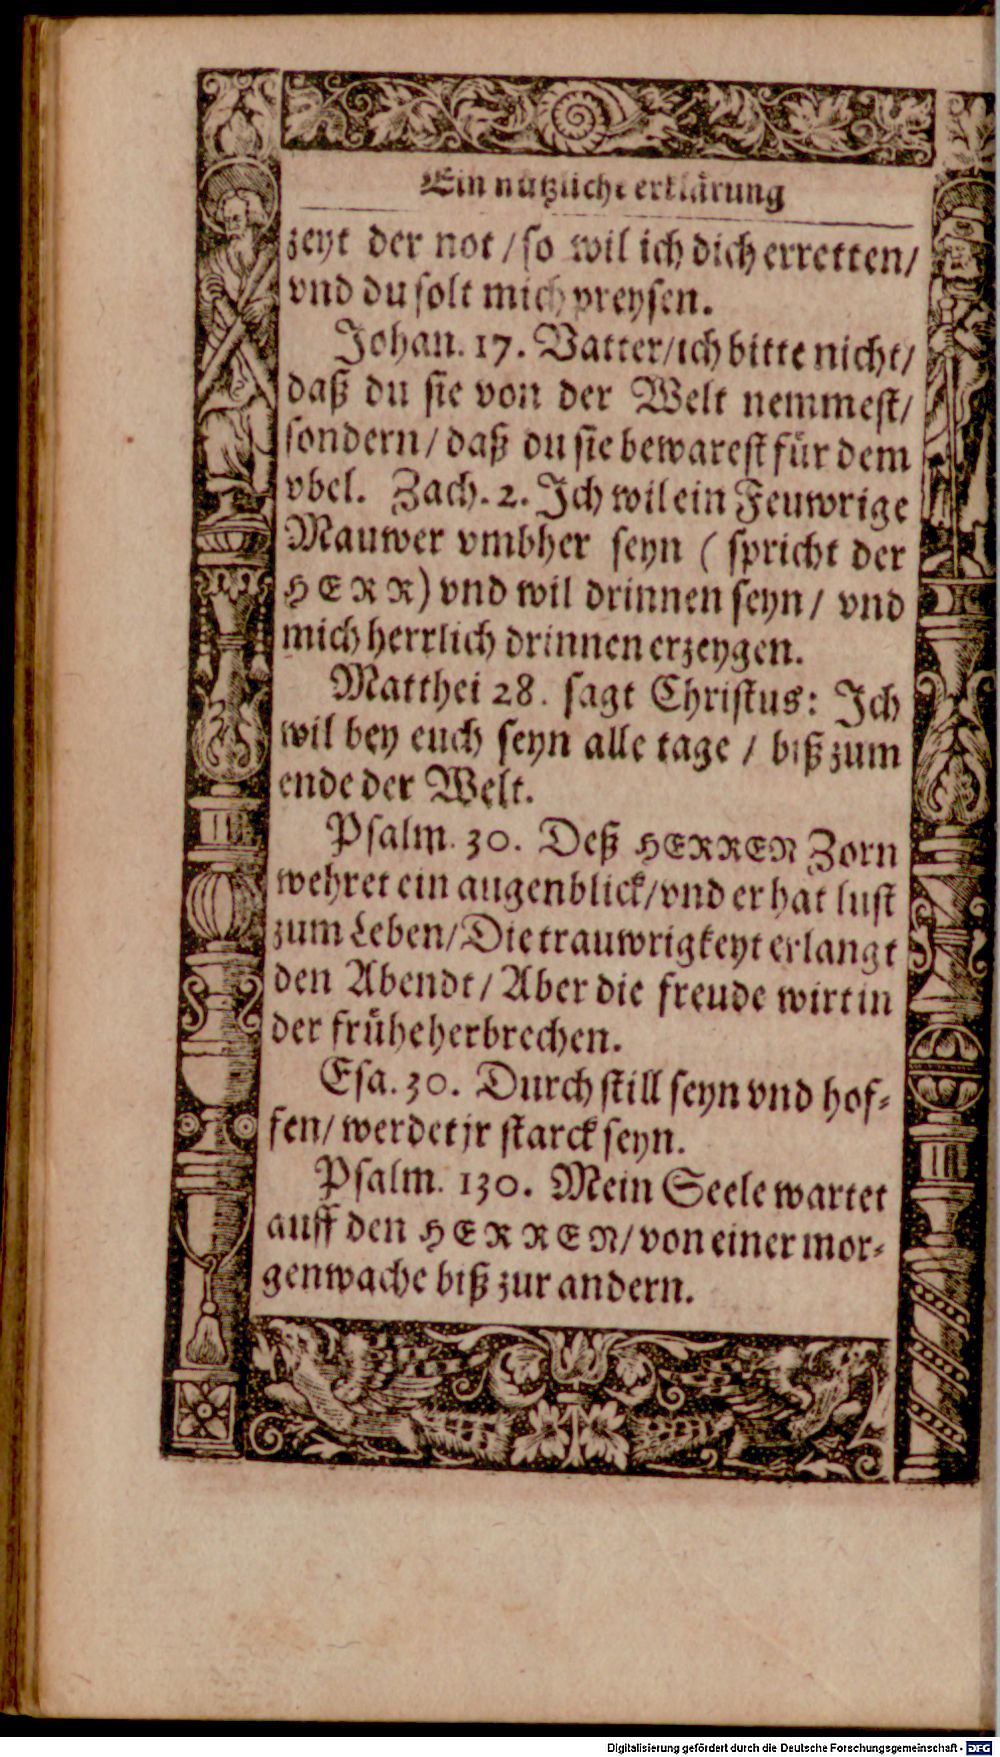 Ein nützliche erklärung
zeyt der not / so wil ich dich erretten /
vnd du solt mich preysen.
Johan. 17. Vatter / ich bitte nicht /
daß du sie von der Welt nemmest /
sondern / daß du sie bewarest für dem
vbel. Zach. 2. Ich wil ein Feuwrige
Mauwer vmbher seyn ( spricht der
HERR) vnd wil drinnen seyn / vnd
mich herrlich drinnen erzeygen.
Matthei 28. sagt Christus: Ich
wil bey euch seyn alle tage / biß zum
ende der Welt.
Psalm. 30. Deß HERREN Zorn
wehret ein augenblick / vnd er hat lust
zum Leben / Die trauwrigkeyt erlangt
den Abendt / Aber die freude wirt in
der früheherbrechen.
Esa. 30. Durch still seyn vnd hof-
fen / werdet jr starck seyn.
Psalm. 130. Mein Seele wartet
auff den HERREN / von einer mor-
genwache biß zur andern.
Digitalisierung gefördert durch die Deutsche Forschungsgemeinschaft - DFG